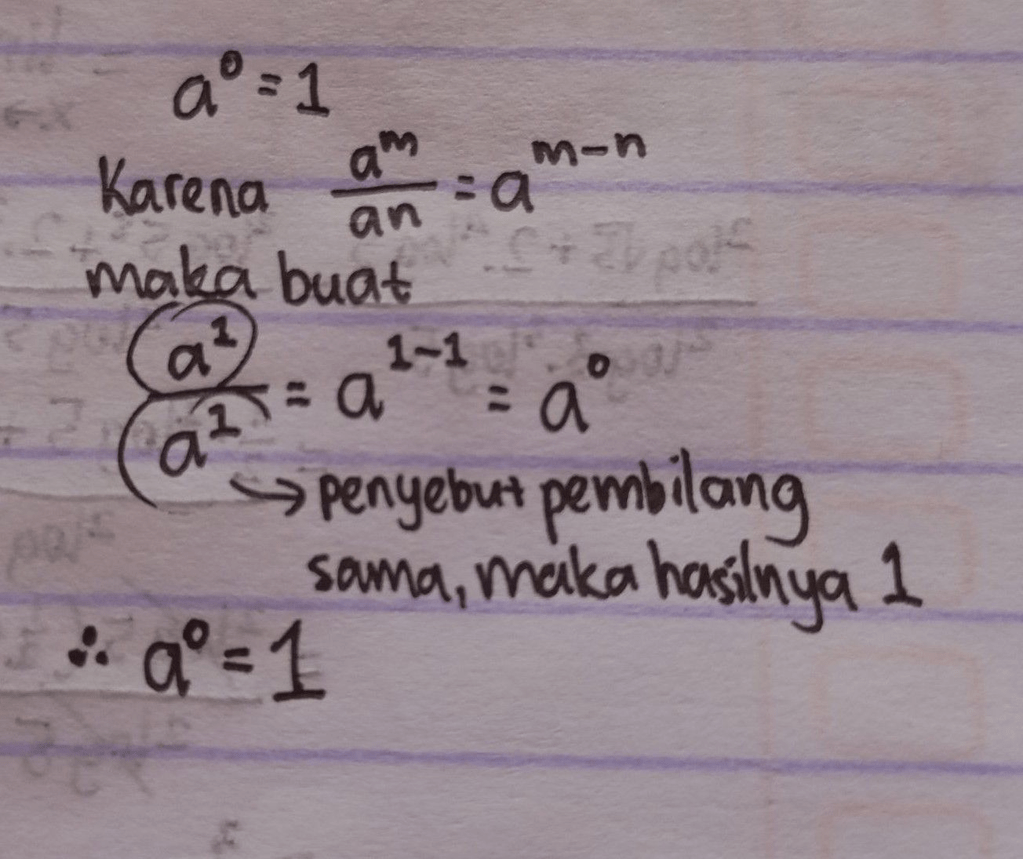 a⁰ = 1
Karena aᵐ/an = aᵐ⁻ⁿ
maka buat
a¹/a¹ = a¹⁻¹ = a⁰
→ penyebut pembilang
sama, maka hasilnya 1
∴ a⁰ = 1